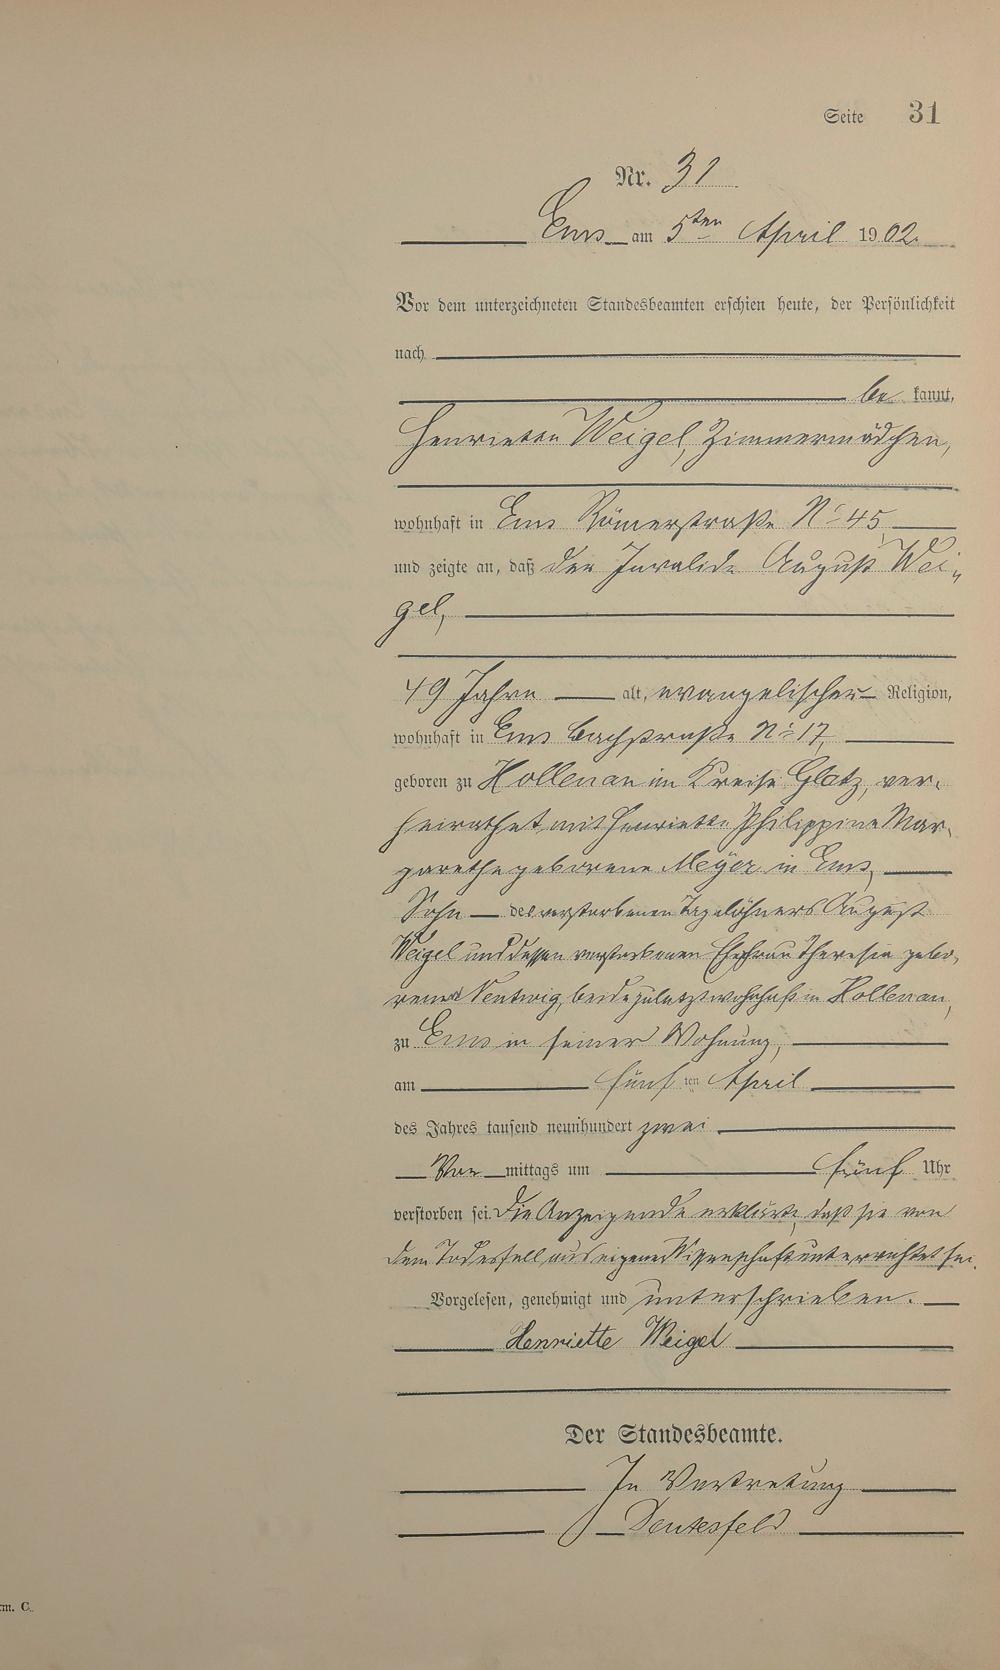 Seite 31
Nr. 31
Ems am 5ten April 1902.
Vor dem unterzeichneten Standesbeamten erschien heute, der Persönlichkeit
nach
be kannt,
Henriette Weigel, Zimmermädchen,
wohnhaft in Ems Römerstraße No 45
und zeigte an, daß der Invalide August Wei-
gel,
49 Jahre alt, evangelischer Religion,
wohnhaft in Ems Bachstraße No 17,
geboren zu Hollenau im Kreise Glatz, ver-
heirathet mit Henriette Philippine Mar-
garethe geborene Meyer in Ems,
Sohn des verstorbenen Tagelöhners August
Weigel und dessen verstorbenen Ehefrau Theresia gebo-
renen Nentwig, beide zuletzt wohnhaft in Hollenau,
zu Ems in seiner Wohnung,
am fünf ten April
des Jahres tausend neunhundert zwei
Vor mittags um fünf Uhr
verstorben sei. Die Anzeigende erklärte, daß sie von
dem Todesfall aus eigener Wissenschaft unterrichtet sei.
Vorgelesen, genehmigt und unterschrieben.
Henriette Weigel
Der Standesbeamte.
In Vertretung
rm. C.